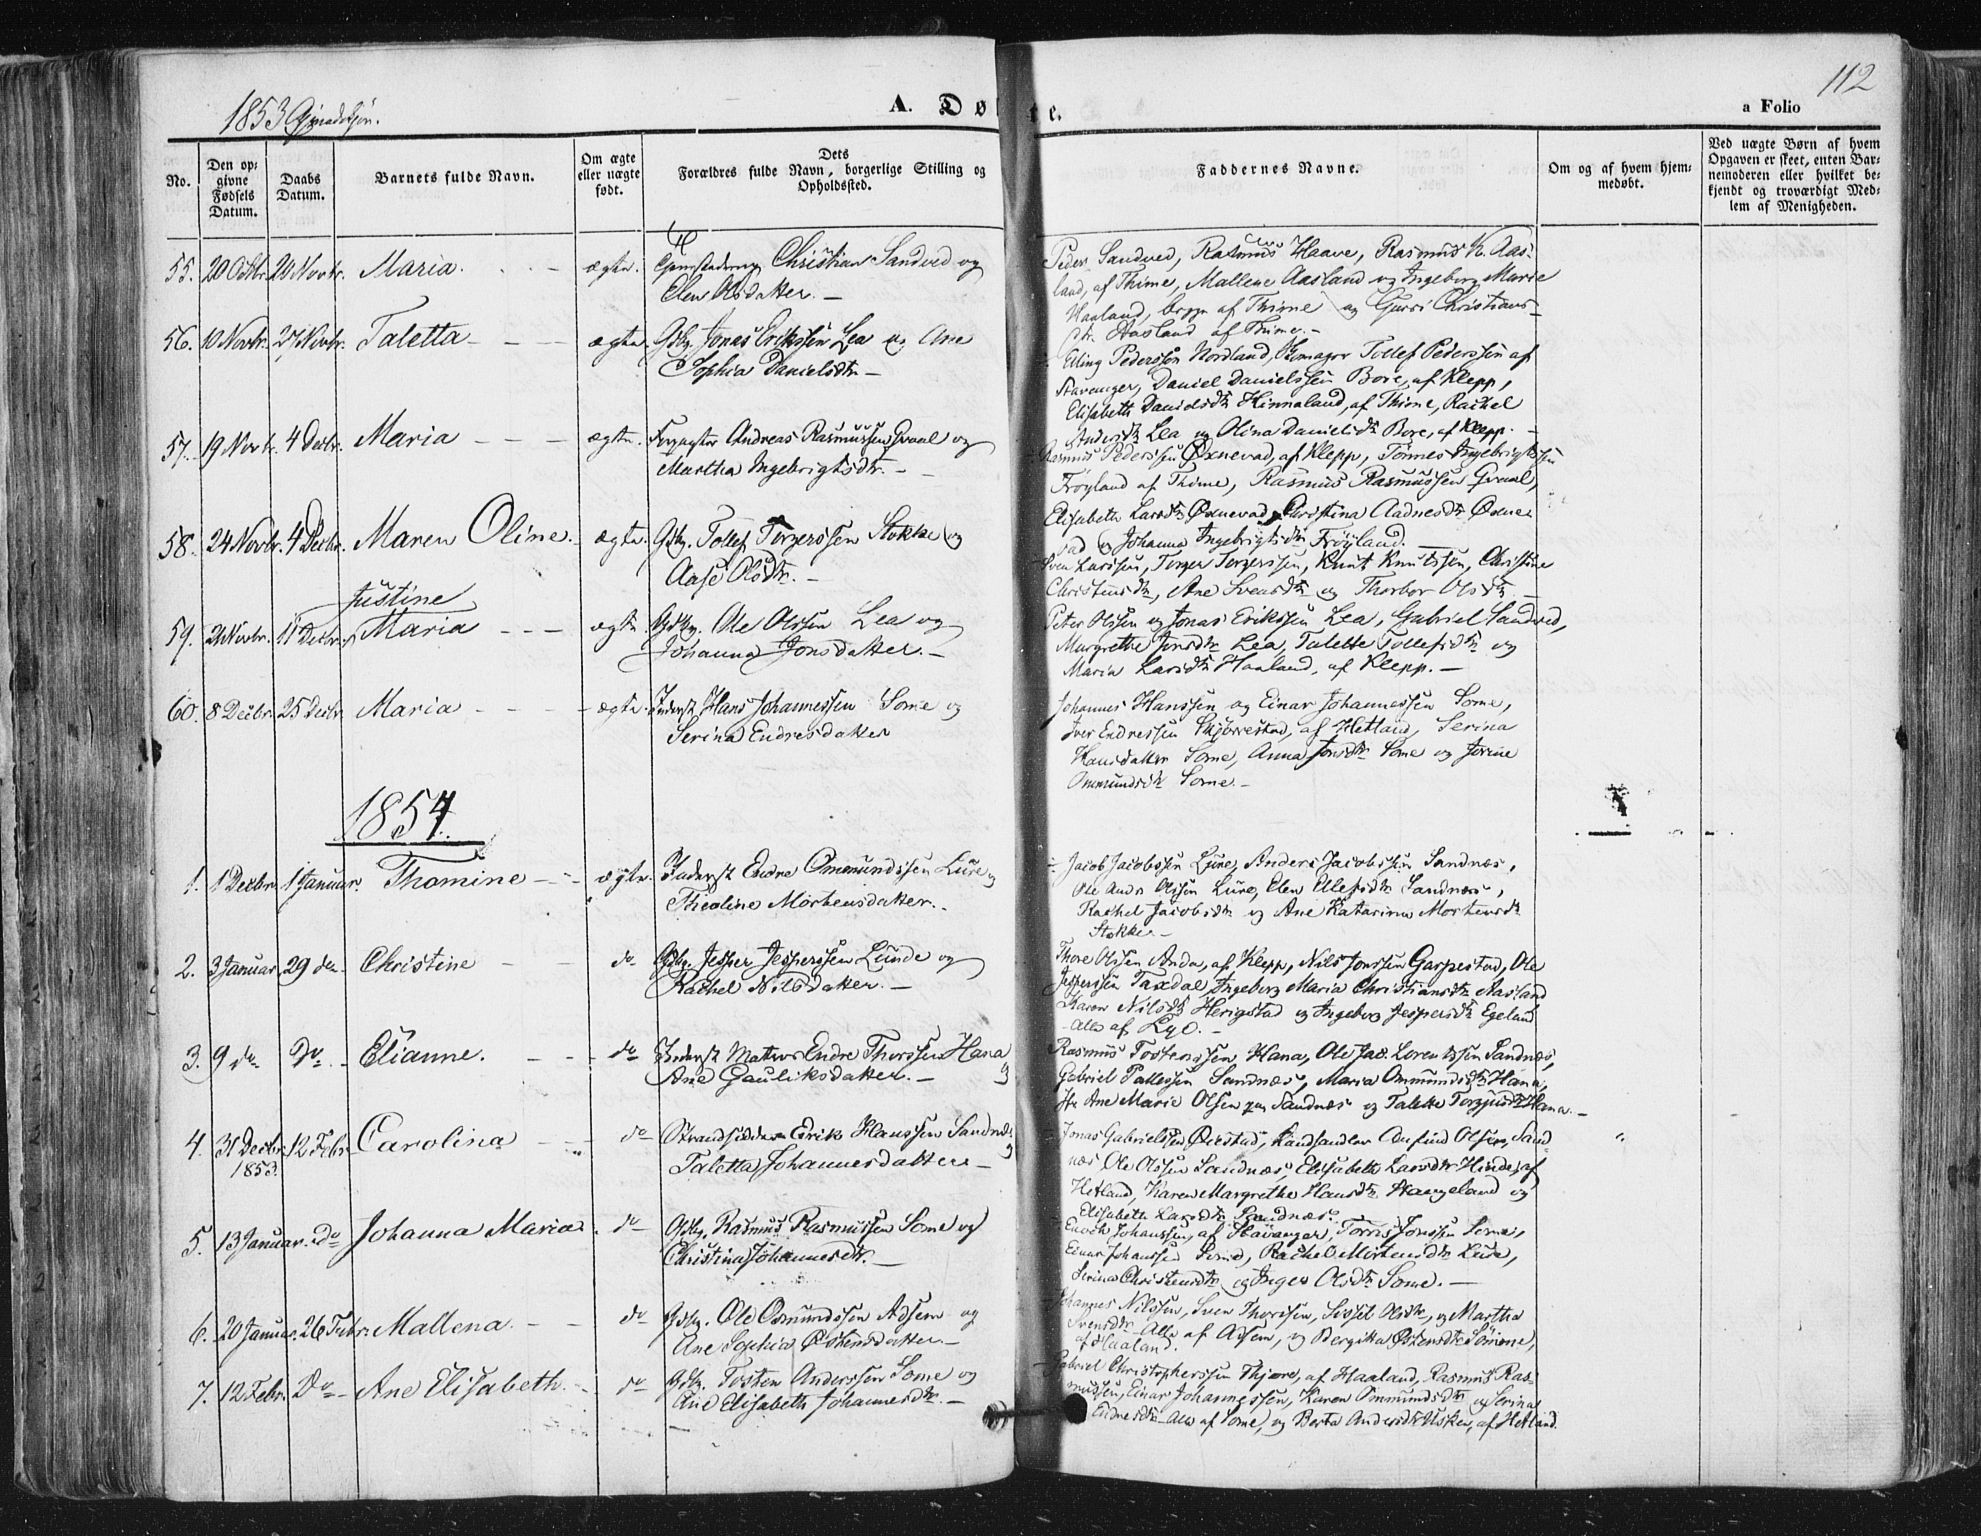 112
1853
A. Døbte.
a Folio
No.
Den op-
givne
Fødsels
Datum.
Daabs
Datum.
Barnets fulde Navn.
Om ægte
eller uægte
født.
Dets
Forældres fulde Navn, borgerlige Stilling og
Opholdssted.
Faddernes Navne.
Om og af hvem hjem-
medøbt.
Ved uægte Børn af hvem
Opgaven er skeet, enten Bar-
nemoderen eller hvilket be-
kjendt og troværdigt Med-
lem af Menigheden.
55. 20 Octbr. 20 Novbr. Maria. ægte. Christian Sandved og
Elen Olsdatter.
Peder Sandved, Rasmus Haave, Rasmus K. Aas-
land, af Thime, Mallene Aasland og Ingeborg Marie
Haaland, begge af Thime og Gurri Christians-
dtr. Aasland af Thime.
56. 10 Novbr. 27 Novbr. Taletta ægte. Gdbr. Jonas Erikssen Lea og Ane
Sophia Danielsdtr
Elling Pederssen Nordland, Tollef Pederssen af
Stavanger, Daniel Danielssen Bore, af Klepp,
Elisabeth Davidsdtr Hinnaland, af Thime, Rachel
Andersdtr Lea og Olina Danielsdtr Bore, af Klepp.
57. 19 Novbr. 4 Decbr. Maria ægte. Forpagter Andreas Rasmussen Graal og
Martha Ingebrigtsdtr.
Rasmus Pederssen Øxnevad, af Klepp, Tönnes Ingebrigtssen
Frøyland af Thime, Rasmus Rasmussen Graal,
Elisabeth Larsdtr Øxnevad, Christina Aadnesdtr Øxne-
vad og Johanna Ingebrigtsdtr Frøyland.
58. 24 Novbr. 4 Decbr. Maren Oline. ægte. Gdbr. Tollef Torgerssen Stokke og
Aase Olsdtr.
Sven Larssen, Torger Torgerssen, Knut Knutssen, Christine
Christensdtr, Ane Svensdtr og Thorbor Olsdtr
Justine
59. 2 Novbr. 11 Decbr. Maria ægte Gdbr. Ole Olssen Lea og
Johanna Jonsdatter.
Peter Olssen og Jonas Erikssen Lea, Gabriel Sandved,
Margrethe Jonsdtr Lea, Talette Tollefsdtr og
Maria Larsdtr Haaland, af Klepp.
60. 8 Decbr. 25 Decbr. Maria ægte. Inderst Hans Johannessen Some og
Serina Endresdatter
Johannes Hanssen og Einar Johannessen Some,
Iver Endressen Skjørrestad, af Hetland, Serina
Hansdatter Some, Anna Jonsdtr Some og Jorine
Ommundsdtr Some.
1854.
1. 1 Decbr. 1 Januar. Thomine ægte. Inderst Endre Ommundssen Lure og
Theoline Mortensdatter.
Jacob Jacobssen Lure, Anders Jacobssen Sandnæs,
Ole Andr. Olssen Lure, Elen Ellefsdtr Sandnæs,
Rachel Jacobsdtr og Ane Katarina Mortensdtr
Stokke
2. 3 Januar. 29 do Christine do Gdbr. Jesper Jesperssen Lunde og
Rachel Nilsdatter.
Thore Olssen Anda, af Klepp, Nils Jonssen Garpestad, Ole
Jesperssen Taxdal, Ingeborg Maria Christiansdtr Aasland
Karen Nilsdtr Herigstad og Ingeborg Jespersdtr Egeland
Alle af Lye.
3. 9 do Do Elianne. do Inderst Matros Endre Thorssen Hana og
Ane Gauliksdatter.
Rasmus Tostenssen Hana, Ole Jac. Lorentssen Sandnæs,
Gabriel Pallessen Sandnæs, Maria Ommundsdtr Hana,
Ane Marie Olsen Sandnæs og Talette Torgersdtr Hana.
4. 31 Decbr. 1853. 12 Febr. Carolina do Strandsidder Erik Hanssen Sandnæs og
Taletta Johannesdatter
Jonas Gabrielssen, Landhandler Olsen, Sand-
næs Ole Olssen Sandnæs, Elisabeth Larsdtr Hinde, af
Hetland, Karen Margrethe Hansdtr Stangeland og
Elisabeth Larsdtr Sandnæs.
5. 13 Januar. do Johanna Maria. do Gdbr. Rasmus Rasmussen Some og
Christina Johannesdtr.
Enoch Johanssen, af Stavanger, Torris Jonssen Some,
Einar Johanssen Some, Rachel Mortensdtr Lure,
Serina Christensdtr og Inger Olsdtr Some.
6. 20 Januar. 26 Febr. Mallena. do Gdbr. Ole Osmundssen Adsem og
Ane Sophia Østensdatter.
Johannes Nilssen, Sven Thorssen, Sissel Olsdtr, og Martha
Svensdtr Alle af Adsem, og Bergitta Østensdtr Sömme,
af Haaland.
7. 12 Febr. Do Ane Elisabeth. do Gdbr. Tosten Anderssen Some og
Ane Elisabeth Johannesdtr.
Gabriel Christopherssen Thjore, af Haaland, Rasmus Ras-
mussen, Einar Johannessen, Karen Ommundsdtr og Serina
Endresdtr Alle af Some, og Berta Andersdtr Usken, af Hetland.